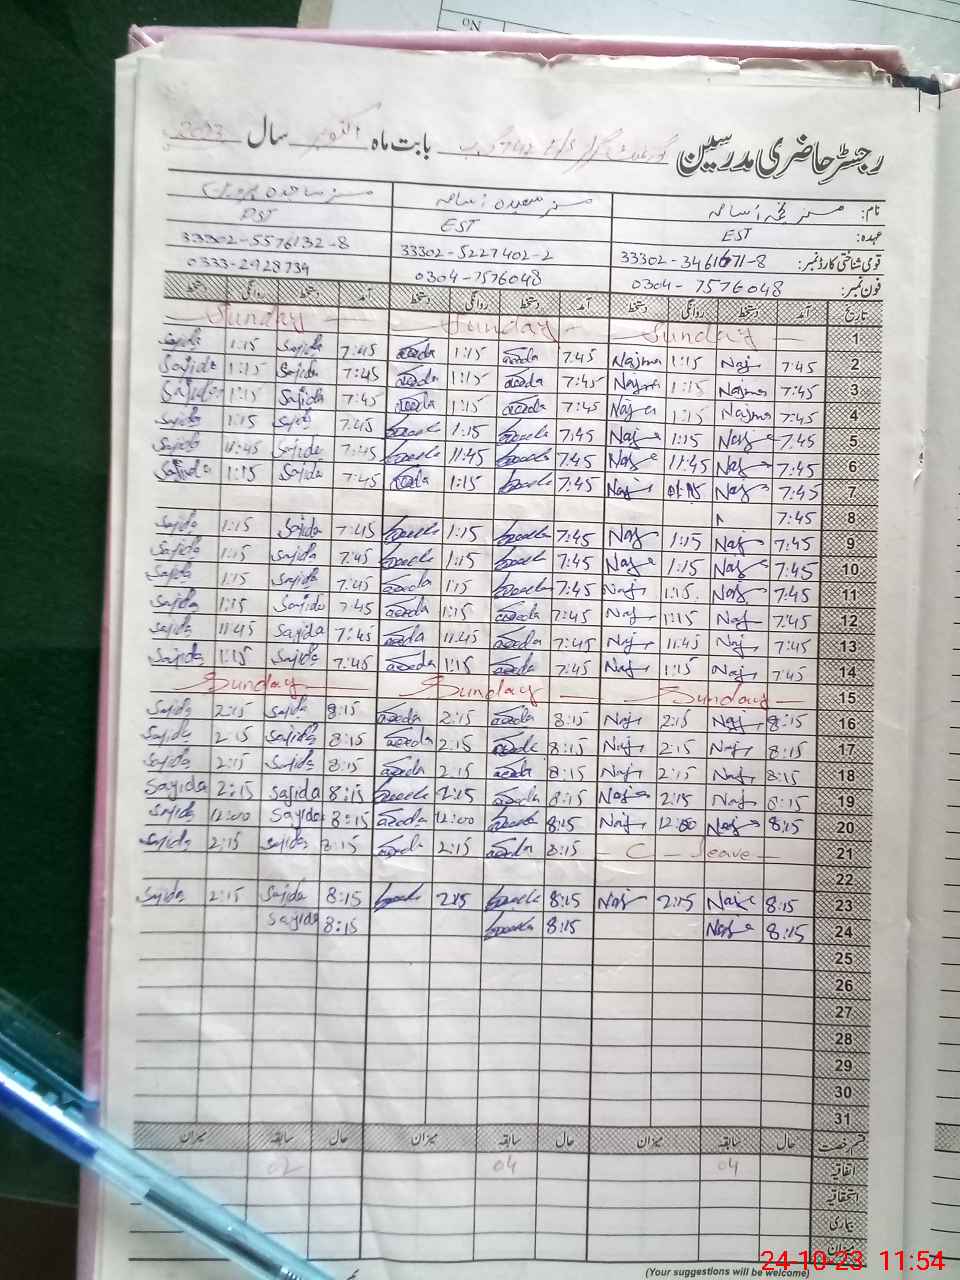 No
رجسٹر حاضری مدرسین گورنمنٹ 742 گ ب بابت ماہ اکتوبر سال 2023
نام: مسز نجمہ اسامہ مسز سعیدہ اسامہ مسز ساجدہ پروین
عہدہ: EST EST PST
قومی شناختی کارڈ نمبر: 33302-3461671-8 33302-5227402-2 33302-5576132-8
فون نمبر: 0304-7576048 0304-7576048 0333-2928739
تاریخ آمد دستخط روانگی دستخط آمد دستخط روانگی دستخط آمد دستخط روانگی دستخط
1 Sunday Sunday Sunday
2 7:45 Naj 1:15 Najma 7:45 1:15 7:45 Sajida 1:15 Sajida
3 7:45 Najma 1:15 Najma 7:45 1:15 7:45 Sajida 1:15 Sajida
4 7:45 Najma 1:15 Najma 7:45 1:15 7:45 Sajida 1:15 Sajida
5 7:45 Naj 1:15 Naj 7:45 1:15 7:45 Sajida 1:15 Sajida
6 7:45 Naj 11:45 Naj 7:45 11:45 7:45 Sajida 11:45 Sajida
7 7:45 Naj 01:15 Naj 7:45 1:15 7:45 Sajida 1:15 Sajida
8 7:45
9 7:45 Naj 1:15 Naj 7:45 1:15 7:45 Sajida 1:15 Sajida
10 7:45 Naj 1:15 Naj 7:45 1:15 7:45 Sajida 1:15 Sajida
11 7:45 Naj 1:15 Naj 7:45 1:15 7:45 Sajida 1:15 Sajida
12 7:45 Naj 1:15 Naj 7:45 1:15 7:45 Sajida 1:15 Sajida
13 7:45 Naj 11:45 Naj 7:45 11:45 7:45 Sajida 11:45 Sajida
14 7:45 Naj 1:15 Naj 7:45 1:15 7:45 Sajida 1:15 Sajida
15 Sunday Sunday Sunday
16 8:15 Naj 2:15 Naj 8:15 2:15 8:15 Sajida 2:15 Sajida
17 8:15 Naj 2:15 Naj 8:15 2:15 8:15 Sajida 2:15 Sajida
18 8:15 Naj 2:15 Naj 8:15 2:15 8:15 Sajida 2:15 Sajida
19 8:15 Naj 2:15 Naj 8:15 2:15 8:15 Sajida 2:15 Sajida
20 8:15 Naj 12:00 Naj 8:15 12:00 8:15 Sajida 12:00 Sajida
21 C - leave 8:15 2:15 8:15 Sajida 2:15 Sajida
22
23 8:15 Naj 2:15 Naj 8:15 2:15 8:15 Sajida 2:15 Sajida
24 8:15 Naj 8:15 8:15 Sajida
25
26
27
28
29
30
31
قسم رخصت حال سابقہ میزان حال سابقہ میزان حال سابقہ میزان
اتفاقیہ 04 04 02
استحقاقیہ
بیماری
میزان
24-10-23 11:54
(Your suggestions will be welcome)